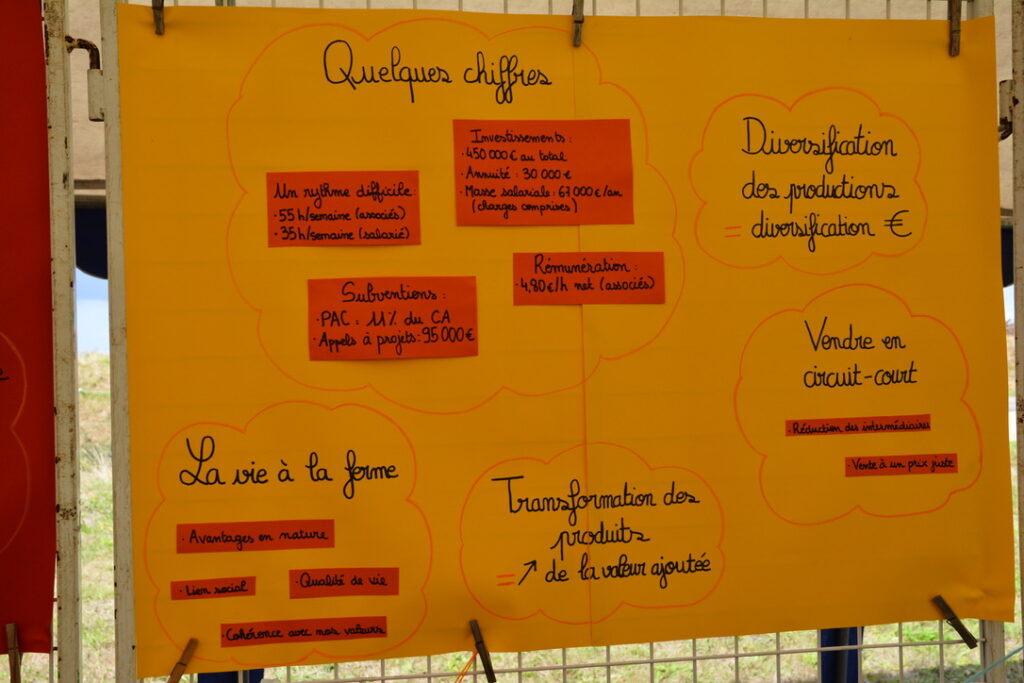 Quelques chiffres
Investissements :
· 450 000 € au total
· Annuité : 30 000 €
· Masse salariale : 67 000 €/an
(charges comprises)
Un rythme difficile :
· 55 h/semaine (associés)
· 35 h/semaine (salarié)
Rémunération :
· 4,80 €/h net (associés)
Subventions :
· PAC : 11% du CA
· Appels à projets : 95 000 €
Diversification
des productions
= diversification €
Vendre en
circuit-court
· Réduction des intermédiaires
· Vente à un prix juste
La vie à la ferme
· Avantages en nature
· Lien social
· Qualité de vie
· Cohérence avec nos valeurs
Transformation des
produits
= ↗ de la valeur ajoutée